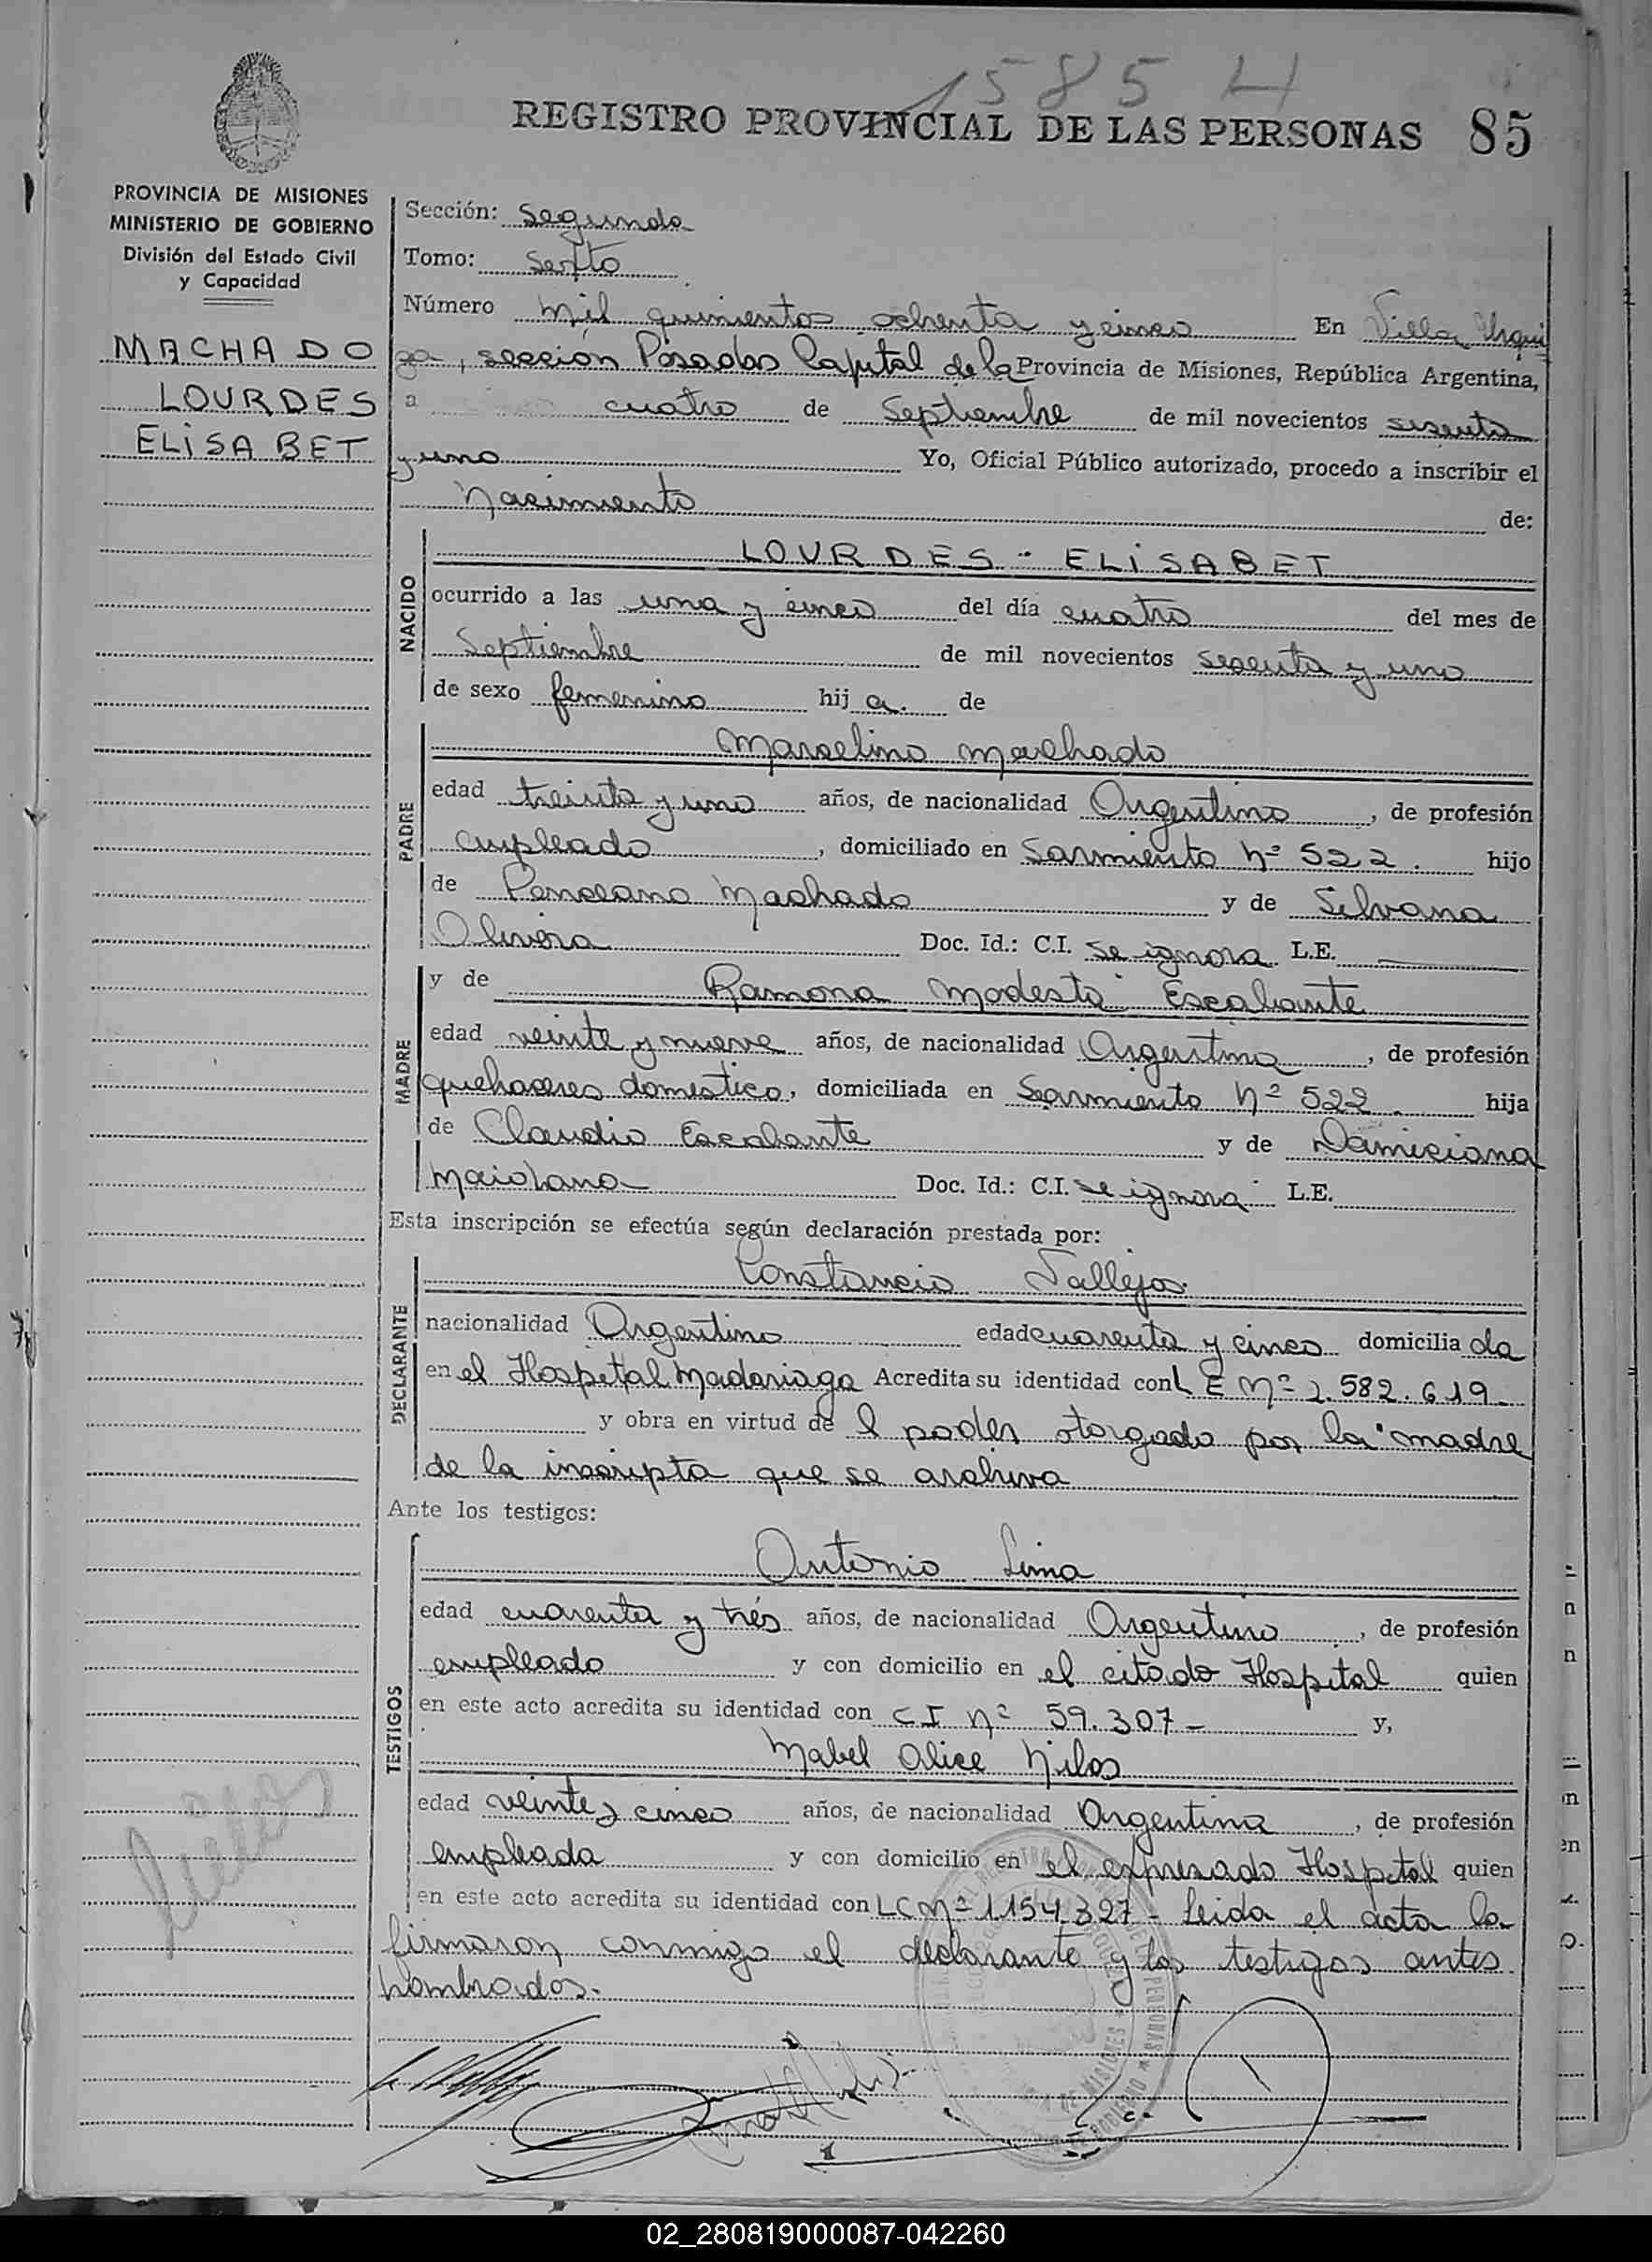 1585 H
REGISTRO PROVINCIAL DE LAS PERSONAS 85
PROVINCIA DE MISIONES
MINISTERIO DE GOBIERNO
División del Estado Civil
y Capacidad
MACHADO
LOURDES
ELISABET
Sección: Segunda
Tomo: Sexto
Número mil quinientos ochenta y cinco En Villa Urqui
za, sección Posadas Capital de la Provincia de Misiones, República Argentina,
a cuatro de Septiembre de mil novecientos sesenta
y uno Yo, Oficial Público autorizado, procedo a inscribir el
Nacimiento de:
NACIDO
LOURDES - ELISABET
ocurrido a las una y cinco del día cuatro del mes de
Septiembre de mil novecientos sesenta y uno
de sexo femenino hij a. de
PADRE
Marcelino Machado
edad treinta y uno años, de nacionalidad Argentino, de profesión
empleado, domiciliado en Sarmiento Nº 522. hijo
de Machado y de Silvana
Olivera Doc. Id.: C.I. se ignora L.E.
MADRE
y de Ramona Modesta Escalante
edad veinte y nueve años, de nacionalidad Argentina, de profesión
quehaceres domestico, domiciliada en Sarmiento Nº 522. hija
de Claudio Escalante y de
Doc. Id.: C.I. se ignora L.E.
Esta inscripción se efectúa según declaración prestada por:
DECLARANTE
Constancio Vallejos
nacionalidad Argentino edad cuarenta y cinco domicilia da
en el Hospital Madariaga Acredita su identidad con L E Nº 2.582.619
y obra en virtud de l poder otorgado por la madre
de la inscripta que se archiva
Ante los testigos:
TESTIGOS
Antonio Lima
edad cuarenta y trés años, de nacionalidad Argentino, de profesión
empleado y con domicilio en el citado Hospital quien
en este acto acredita su identidad con C I Nº 59.307 - y,
Mabel Alice
edad veinte y cinco años, de nacionalidad Argentina, de profesión
empleada y con domicilio en el expresado Hospital quien
en este acto acredita su identidad con LC Nº 1.154.327 - Leida el acta la
firmaron conmigo el declarante y los testigos antes
nombrados.
02_280819000087-042260